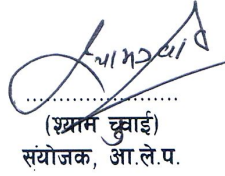 ..........................
(श्याम चुवाई)
संयोजक, आ.ले.प.